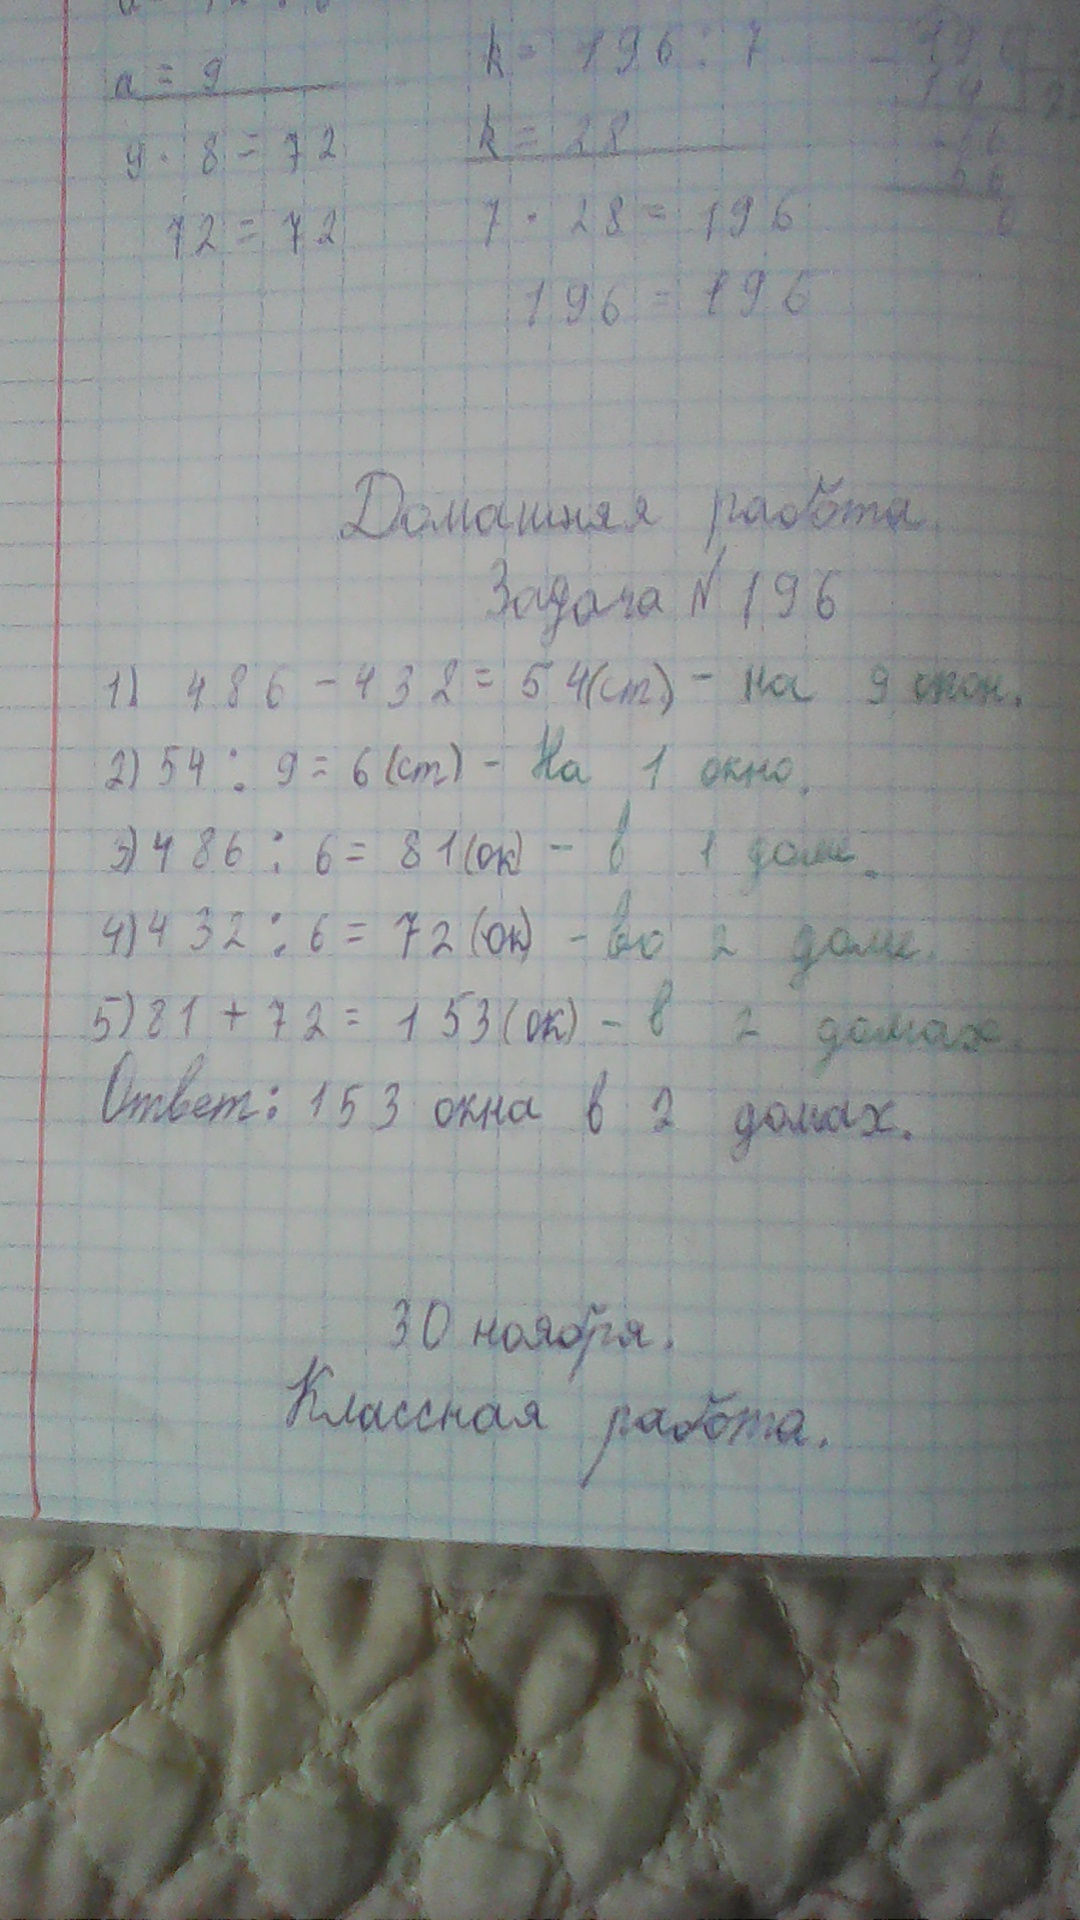 a = 9
k = 196 : 7
9 · 8 = 72
k = 28
72 = 72
7 · 28 = 196
196 = 196
Домашняя работа
Задача N 196
1) 486 - 432 = 54(ст) - на 9 окон.
2) 54 : 9 = 6(ст) - На 1 окно.
3) 486 : 6 = 81(ок) - в 1 доме.
4) 432 : 6 = 72(ок) - во 2 доме.
5) 81 + 72 = 153(ок) - в 2 домах.
Ответ: 153 окна в 2 домах.
30 ноября.
Классная работа.